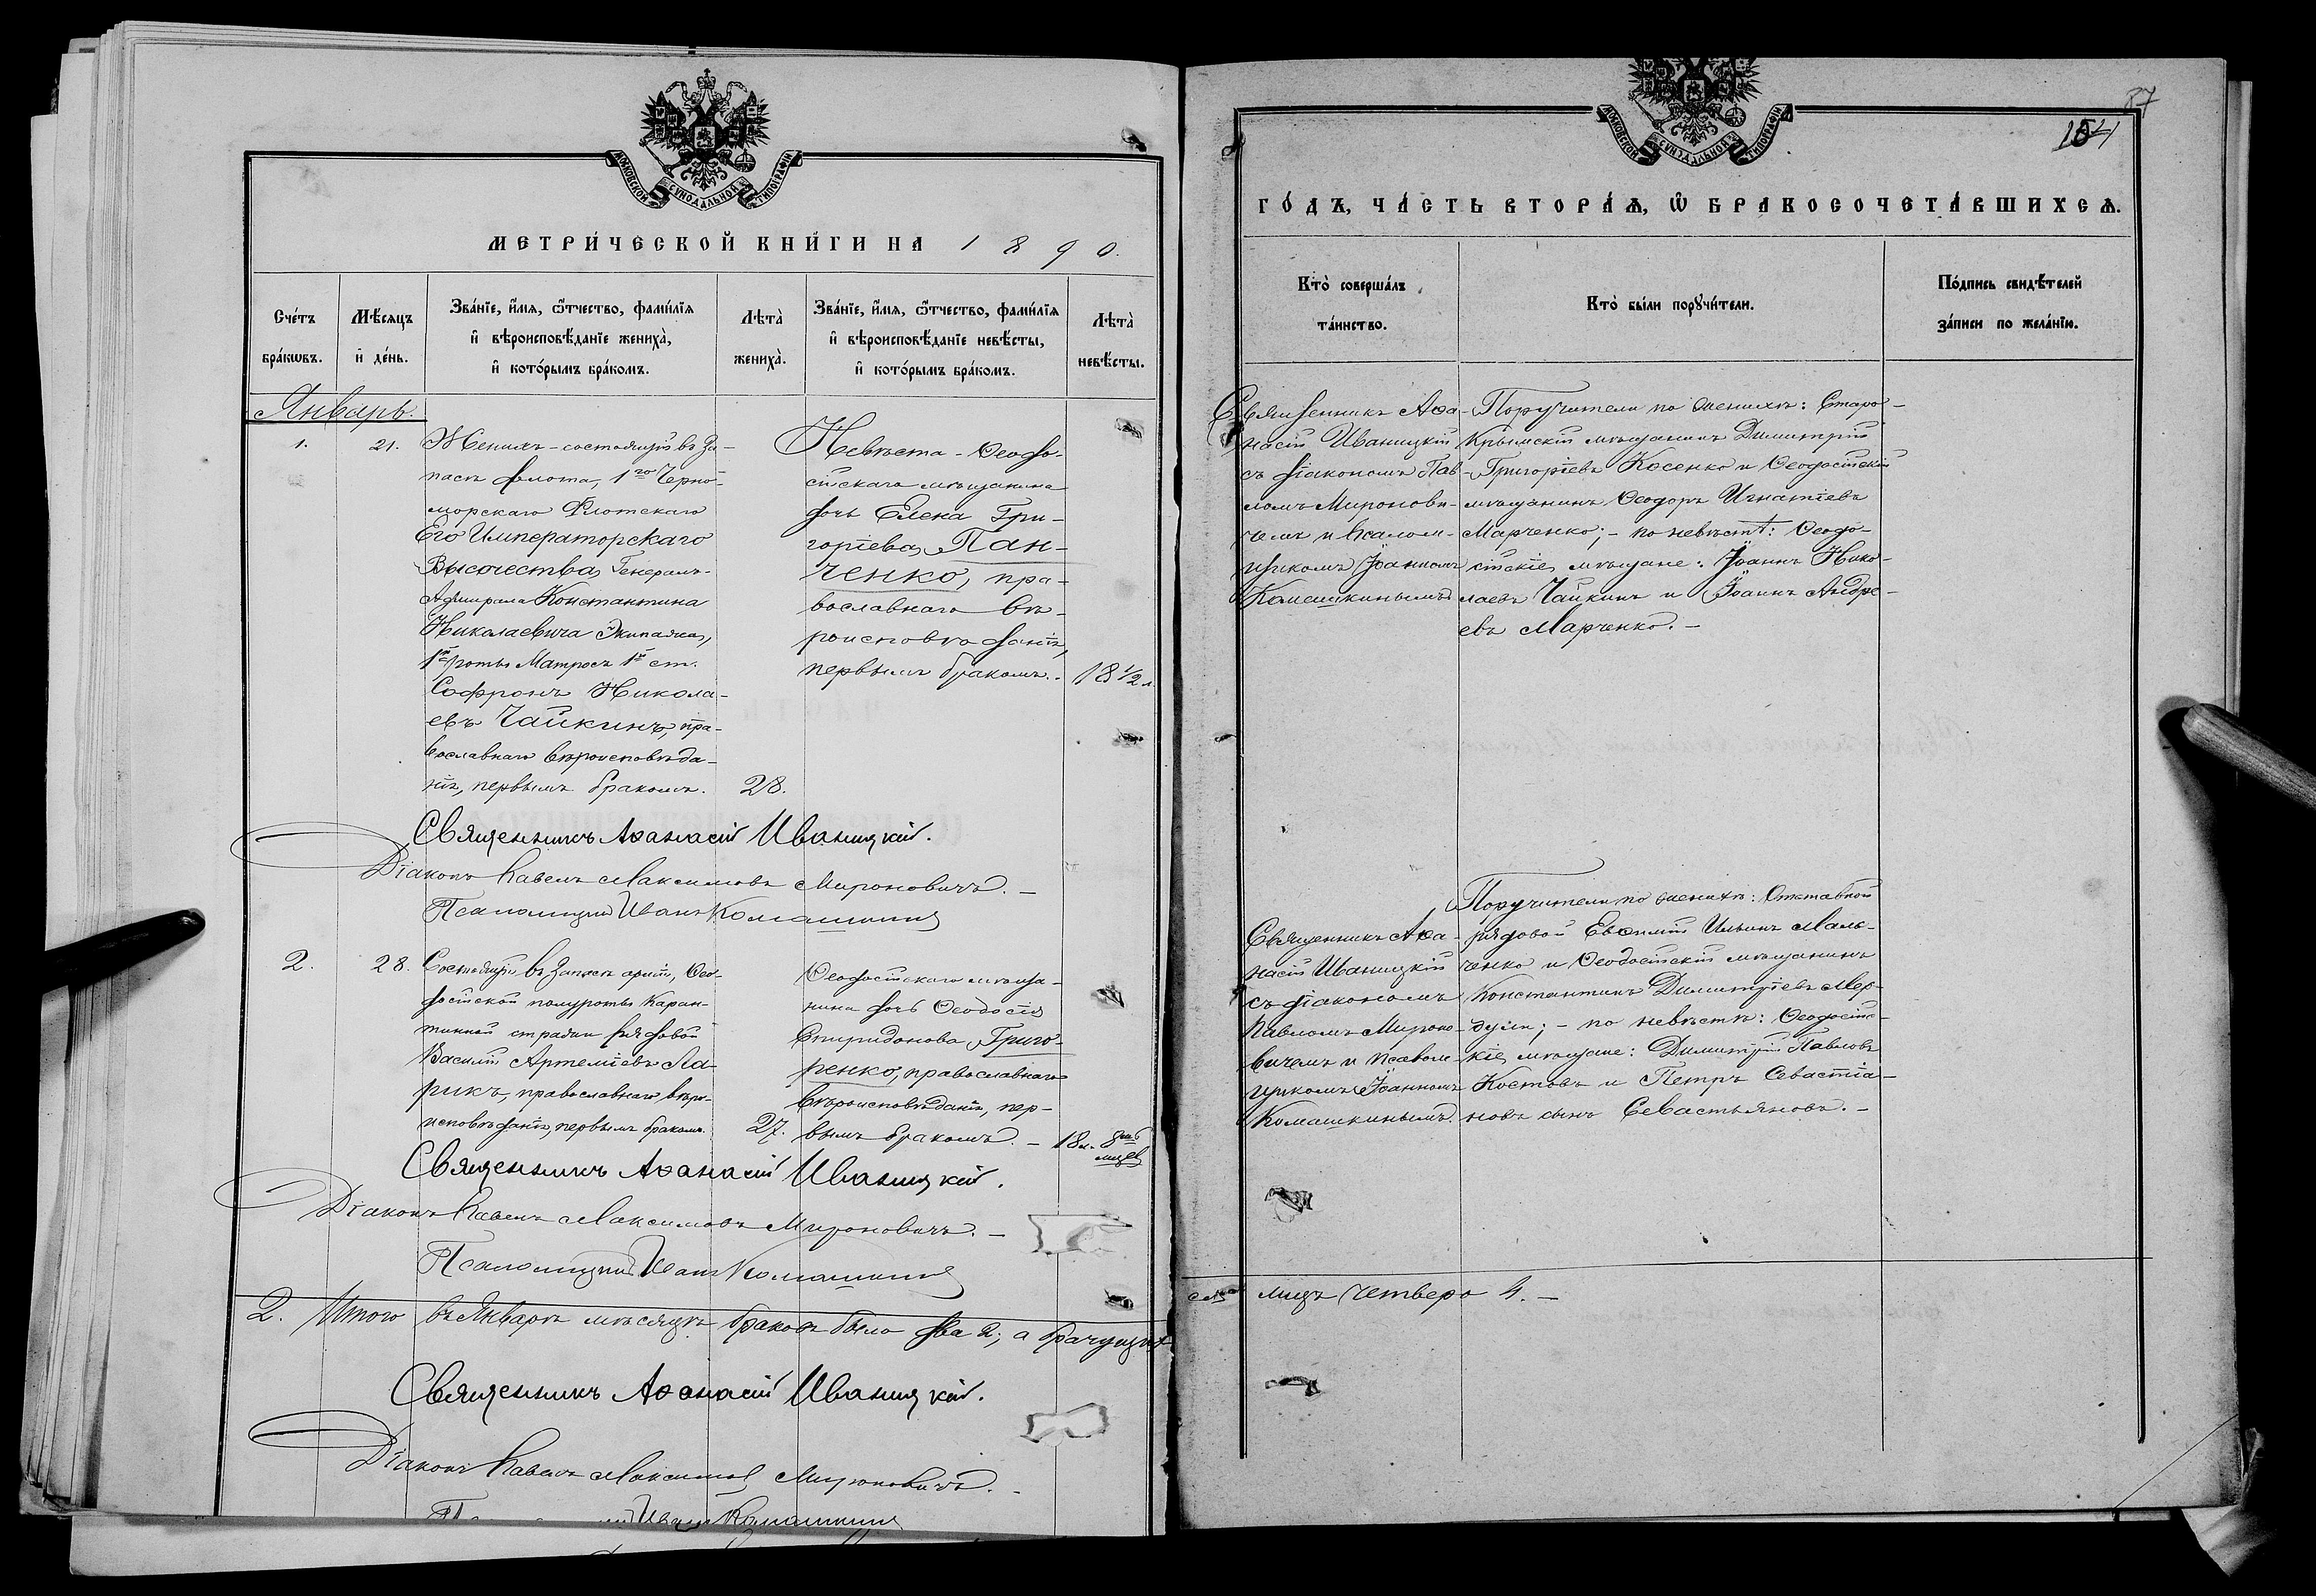 МОСКОВСКОЙ СѴНОДАЛЬНОЙ ТИПОГРАФІИ
МЕТРИ́ЧЕСКОЙ КНИ́ГИ НА 1890.
Сче́тъ бра́кωвъ.
Мѣ́сяцъ и҆ де́нь.
Зва́нїе, и҆́мѧ, ѻ҆́тчество, фами́лїѧ
и҆ вѣроисповѣ́данїе жениха̀,
и҆ кото́рымъ бра́комъ.
Лѣта̀ жениха̀.
Зва́нїе, и҆́мѧ, ѻ҆́тчество, фами́лїѧ
и҆ вѣроисповѣ́данїе невѣ́сты,
и҆ кото́рымъ бра́комъ.
Лѣта̀ невѣ́сты.
Январь.
1.
21.
Женихъ - состоящій въ За-
пасѣ флота, 1го Черно-
морскаго Флотскаго
Его Императорскаго
Высочества, Генералъ-
Адмирала Константина
Николаевича Экипажа,
1й роты Матросъ 1й ст.
Софронъ Никола-
евъ Чайкинъ, пра-
вославнаго вѣроисповѣда-
нія, первымъ бракомъ.
28.
Невѣста - Ѳеодо-
сійскаго мѣщанина
дочь Елена Гри-
горіева Пан-
ченко, пра-
вославнаго вѣ-
роисповѣданія,
первымъ бракомъ.
18 1/2 л.
Священникъ Аѳанасій Иваницкій.
Діаконъ Павелъ Максимовъ Мироновичъ. —
Псаломщикъ Иванъ Комашкинъ
2.
28.
Состоящій въ Запасѣ арміи, Ѳео-
досійской полуроты Каран-
тинной стражи рядовой
Василій Артеміевъ Ла-
рикъ, православнаго вѣро-
исповѣданія, первымъ бракомъ.
27.
Ѳеодосійскаго мѣща-
нина дочь Ѳеодосія
Спиридонова Григо-
ренко, православнаго
вѣроисповѣданія, пер-
вымъ бракомъ. —
18 л. 8ми мцев
Священникъ Аѳанасій Иваницкій.
Діаконъ Павелъ Максимовъ Мироновичъ. —
Псаломщикъ Иванъ Комашкинъ
2. Итого въ Январѣ мѣсяцѣ браковъ было два 2; а брачущихся
Священникъ Аѳанасій Иваницкій.
Діаконъ Павелъ Максимовъ Мироновичъ. —
Иванъ Комашкинъ
87
МОСКОВСКОЙ СѴНОДАЛЬНОЙ ТИПОГРАФІИ
ГО́ДЪ, ЧА́СТЬ ВТОРА́Ѧ, Ѡ҆ БРАКОСОЧЕТА́ВШИХСѦ.
Кто̀ соверша́лъ
та́инство.
Кто̀ бы́ли порꙋчи́тели.
По́дпись свидѣ́телей
за́писи по жела́нїю.
Священникъ Аѳа-
насій Иваницкій
съ діакономъ Пав-
ломъ Миронови-
чемъ и псалом-
щикомъ Іоанномъ
Комашкинымъ
Поручители по женихѣ: Старо-
Крымскій мѣщанинъ Димитрій
Григоріевъ Косенко и Ѳеодосійскій
мѣщанинъ Ѳеодоръ Игнатіевъ
Марченко; - по невѣстѣ: Ѳеодо-
сійскіе мѣщане: Іоаннъ Нико-
лаевъ Чайкинъ и Іоаннъ Андре-
евъ Марченко. —
Священникъ Аѳа-
насій Иваницкій
съ діакономъ
Павломъ Мироно-
вичемъ и псалом-
щикомъ Іоанномъ
Комашкинымъ.
Поручители по женихѣ: Отставной
рядовой Евѳимій Ильинъ Маль-
ченко и Ѳеодосійскій мѣщанинъ
Константинъ Димитріевъ Мер-
; - по невѣстѣ: Ѳеодосійс-
кіе мѣщане: Димитрій Павловъ
Костовъ и Петръ Севастіа-
новъ сынъ Севастьяновъ. —
лицъ четверо 4. —